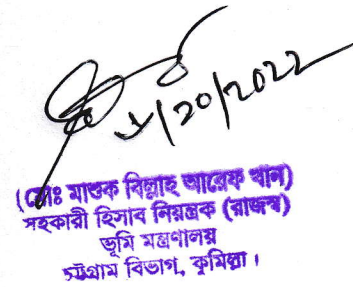 /20/2022
(মোঃ মাশুক বিল্লাহ আরেফ খান)
সহকারী হিসাব নিয়ন্ত্রক (রাজস্ব)
ভূমি মন্ত্রণালয়
চট্টগ্রাম বিভাগ, কুমিল্লা।